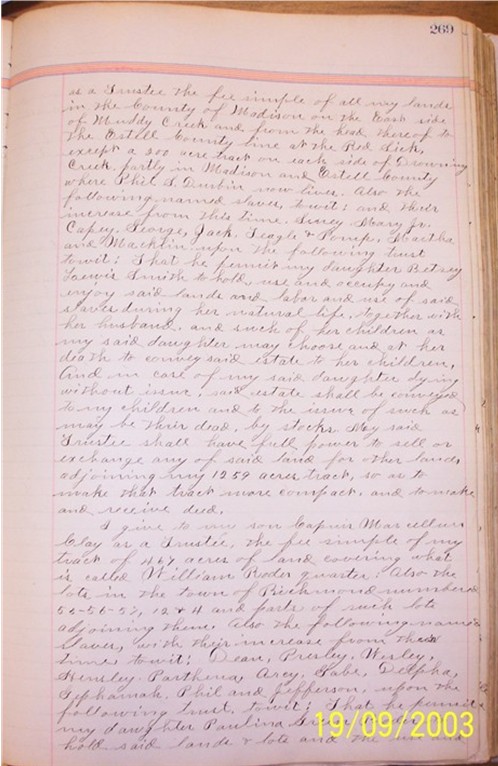 269
as a Trustee the fee simple of all my lands
in the County of Madison on the East side
of Muddy Creek and from the head thereof to
the Estill County line at the Red Lick,
except a 200 acre tract on each side of Drowning
Creek. partly in Madison and Estell County
where Phil S. Durbin now lives. Also the
following named slaves, towit: and their
increase from this time. Mary Jr.
George, Jack, & Pomp, Martha
and Macklin. upon the following trust
towit: That he permit my daughter Betsey
Lewis Smith to hold, use and occupy and
enjoy said lands and labor and use of said
slaves during her natural life, together with
her husband. and such of her children as
my said daughter may choose and at her
death to convey said estate to her children,
And in case of my said daughter dying
without issue, said estate shall be conveyed
to my children and to the issue of such as
may be their dead, by stocks. My said
Trustee shall have full power to sell or
exchange any of said land for other lands
adjoining my 1259 acres tract, so as to
make that tract more compact. and to make
and receive deed.
I give to my son Marcellus
Clay as a Trustee, the fee simple of my
tract of 467 acres of land covering what
is called William Rodes quarter: Also the
lots in the town of Richmond numbered
55-56-57, 12 & 4 and parts of such lots
adjoining them. Also the following named
slaves, with their increase from this
time towit: Dean, Presley, Wesley,
Hensley Parthena, Arey,
Phil and Jefferson. upon the
following trust, towit: That he permit
my daughter Paulina
hold said lands & lots and the use and
19/09/2003